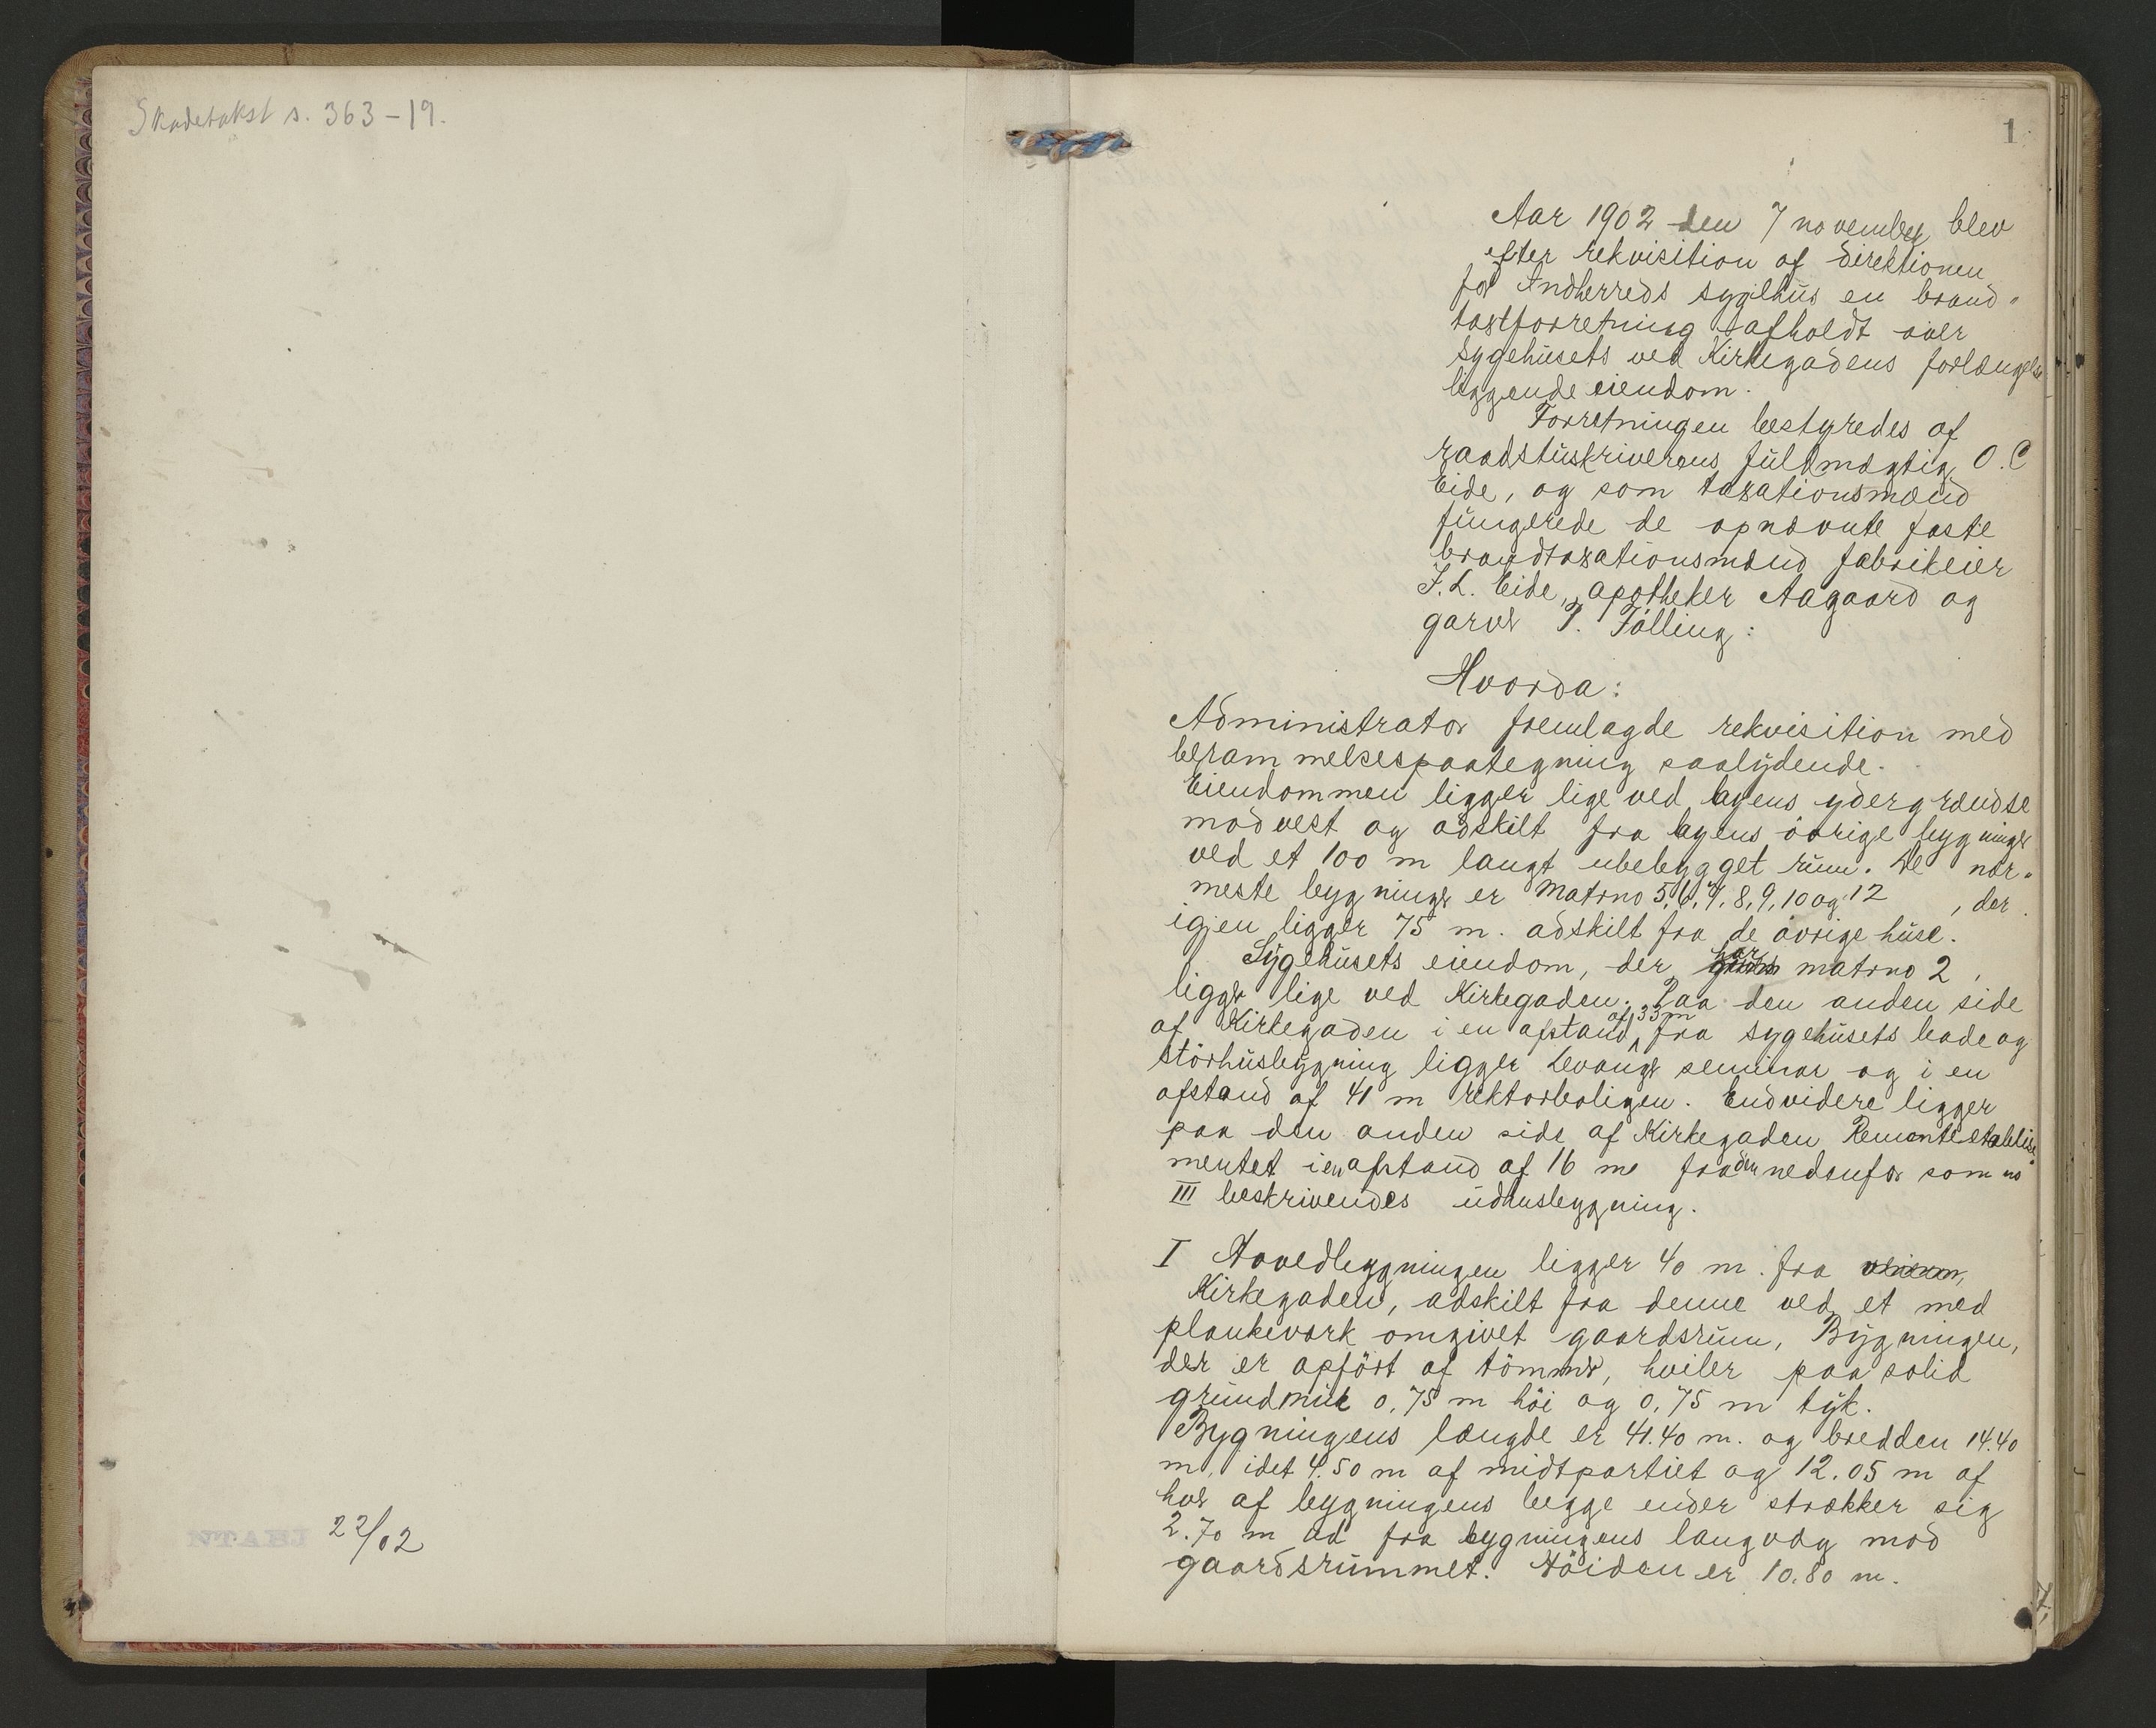 Skadetakst s. 363-19.
22/02
1
Aar 1902 den 7 november blev
efter rekvisition af direktionen
for Indherreds sygehus en brand-
taxtforretning afholdt over
sygehusets ved Kirkegadens forlængelse
liggende eiendom.
Forretningen bestyredes af
raadstuskriverens fuldmægtig O. C
Eide, og som taxationsmænd
fungerede de opnævnte faste
brandtaxationsmænd fabrikeier
J. L. Eide, apotheker Aagaard og
garver P. Fölling:
Hvorda:
Administrator fremlagde rekvisition med
berammelsespaategning saalydende.
Eiendommen ligger lige ved byens ydergrændse
mod vest og adskilt fra byens övrige bygninger
ved et 100 m langt ubebygget rum. De nær-
meste bygninger er Matrno 5, 6, 7, 8, 9, 10 og 12 , der
igjen ligger 75 m. adskilt fra de övrige huse.
Sygehusets eiendom, der har matrno 2,
ligger lige ved Kirkegaden. Paa den anden side
af Kirkegaden i en afstand af 33 m fra sygehusets bade og
störhusbygning ligger Levanger seminar og i en
afstand af 41 m rektorboligen. Endvidere ligger
paa den anden side af Kirkegaden Remonteetablise-
mentet i en afstand af 16 m fra den nedenfor som no
III beskrivendes udhusbygning.
I Hovedbygningen ligger 40 m. fra
Kirkegaden, adskilt fra denne ved et med
plankeværk omgivet gaardsrum, Bygningen,
der er opfört af tömmer, hviler paa solid
grundmur 0,75 m höi og 0,75 m tyk.
Bygningens længde er 41.40 m. og bredden 14.40
m, idet 4.50 m af midtpartiet og 12.05 m af
hver af bygningens begge ender strækker sig
2.70 m ud fra bygningens langvæg mod
gaardsrummet. Höiden er 10.80 m.